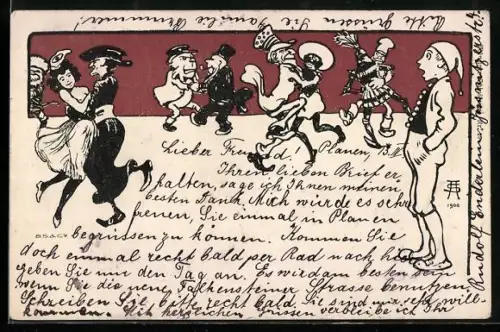 Bitte grüssen Sie Familie
Lieber Freund! Plauen, 15.
Ihren lieben Brief er
halten, sage ich Ihnen meinen
besten Dank. Mich würde es sehr
freuen, Sie einmal in Plauen
begrüssen zu können. Kommen Sie
doch einmal recht bald per Rad nach hier
geben Sie mir den Tag an. Es wird am besten sein
wenn Sie die neue Falkensteiner Strasse benutzen.
Schreiben Sie, bitte recht bald, Sie sind mir sehr will-
kommen. Mit herzlichen Grüssen verbleibe ich Ihr
Rudolf Enderlein
B.S.&C.V.
1900